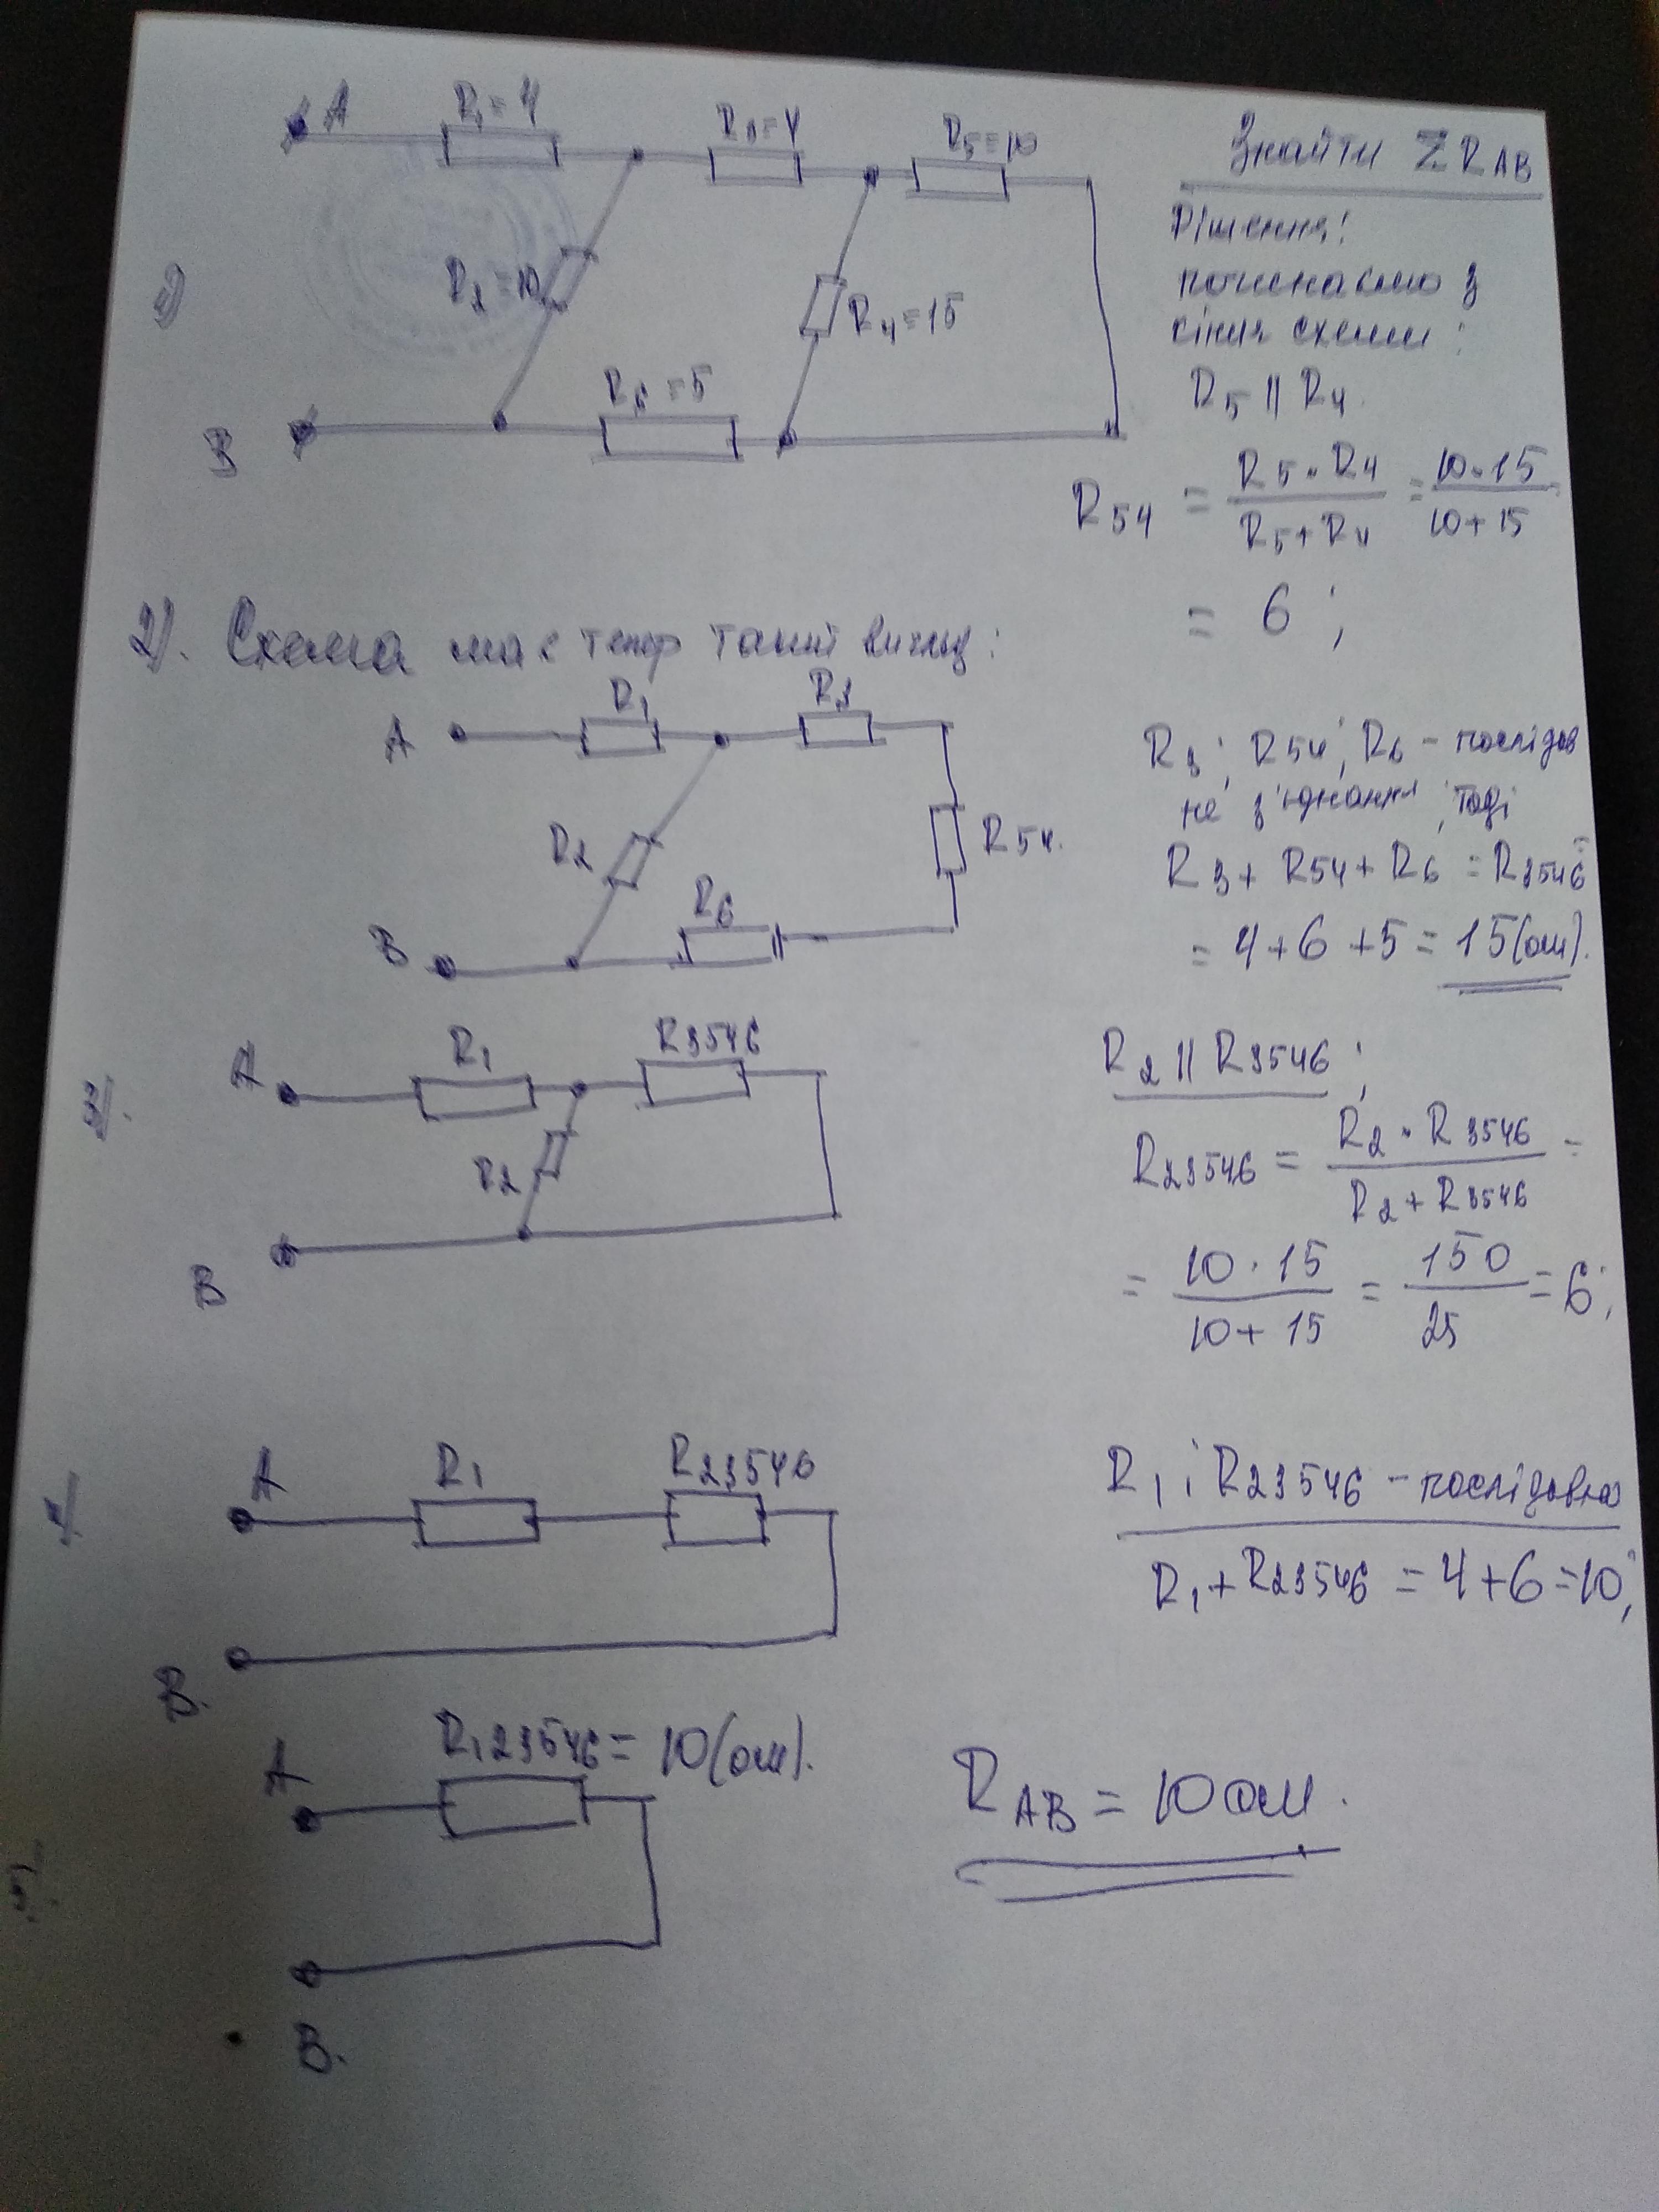 A
R₁=4
R₃=4
R₅=10
Знайти ΣR AB
Рішення:
починаємо з
кінця схеми:
1)
R₂=10
R₄=15
R₅ || R₄
B
R₆=5
R₅₄ = R₅·R₄ / R₅+R₄ = 10·15 / 10+15 =
= 6;
2). Схема має тепер такий вигляд:
A
R₁
R₃
R₂
R₅₄.
B
R₆
R₃; R₅₄; R₆ – послідов
не з'єднання, тоді
R₃ + R₅₄ + R₆ = R₃₅₄₆ =
= 4+6+5 = 15(ом).
3).
A
R₁
R₃₅₄₆
R₂
B
R₂ || R₃₅₄₆;
R₂₃₅₄₆ = R₂·R₃₅₄₆ / R₂+R₃₅₄₆ =
= 10·15 / 10+15 = 150 / 25 = 6;
4)
A
R₁
R₂₃₅₄₆
B.
R₁ і R₂₃₅₄₆ – послідовно
R₁+R₂₃₅₄₆ = 4+6=10;
5).
A
R₁₂₃₅₄₆= 10(ом).
B.
R AB = 10 ом.